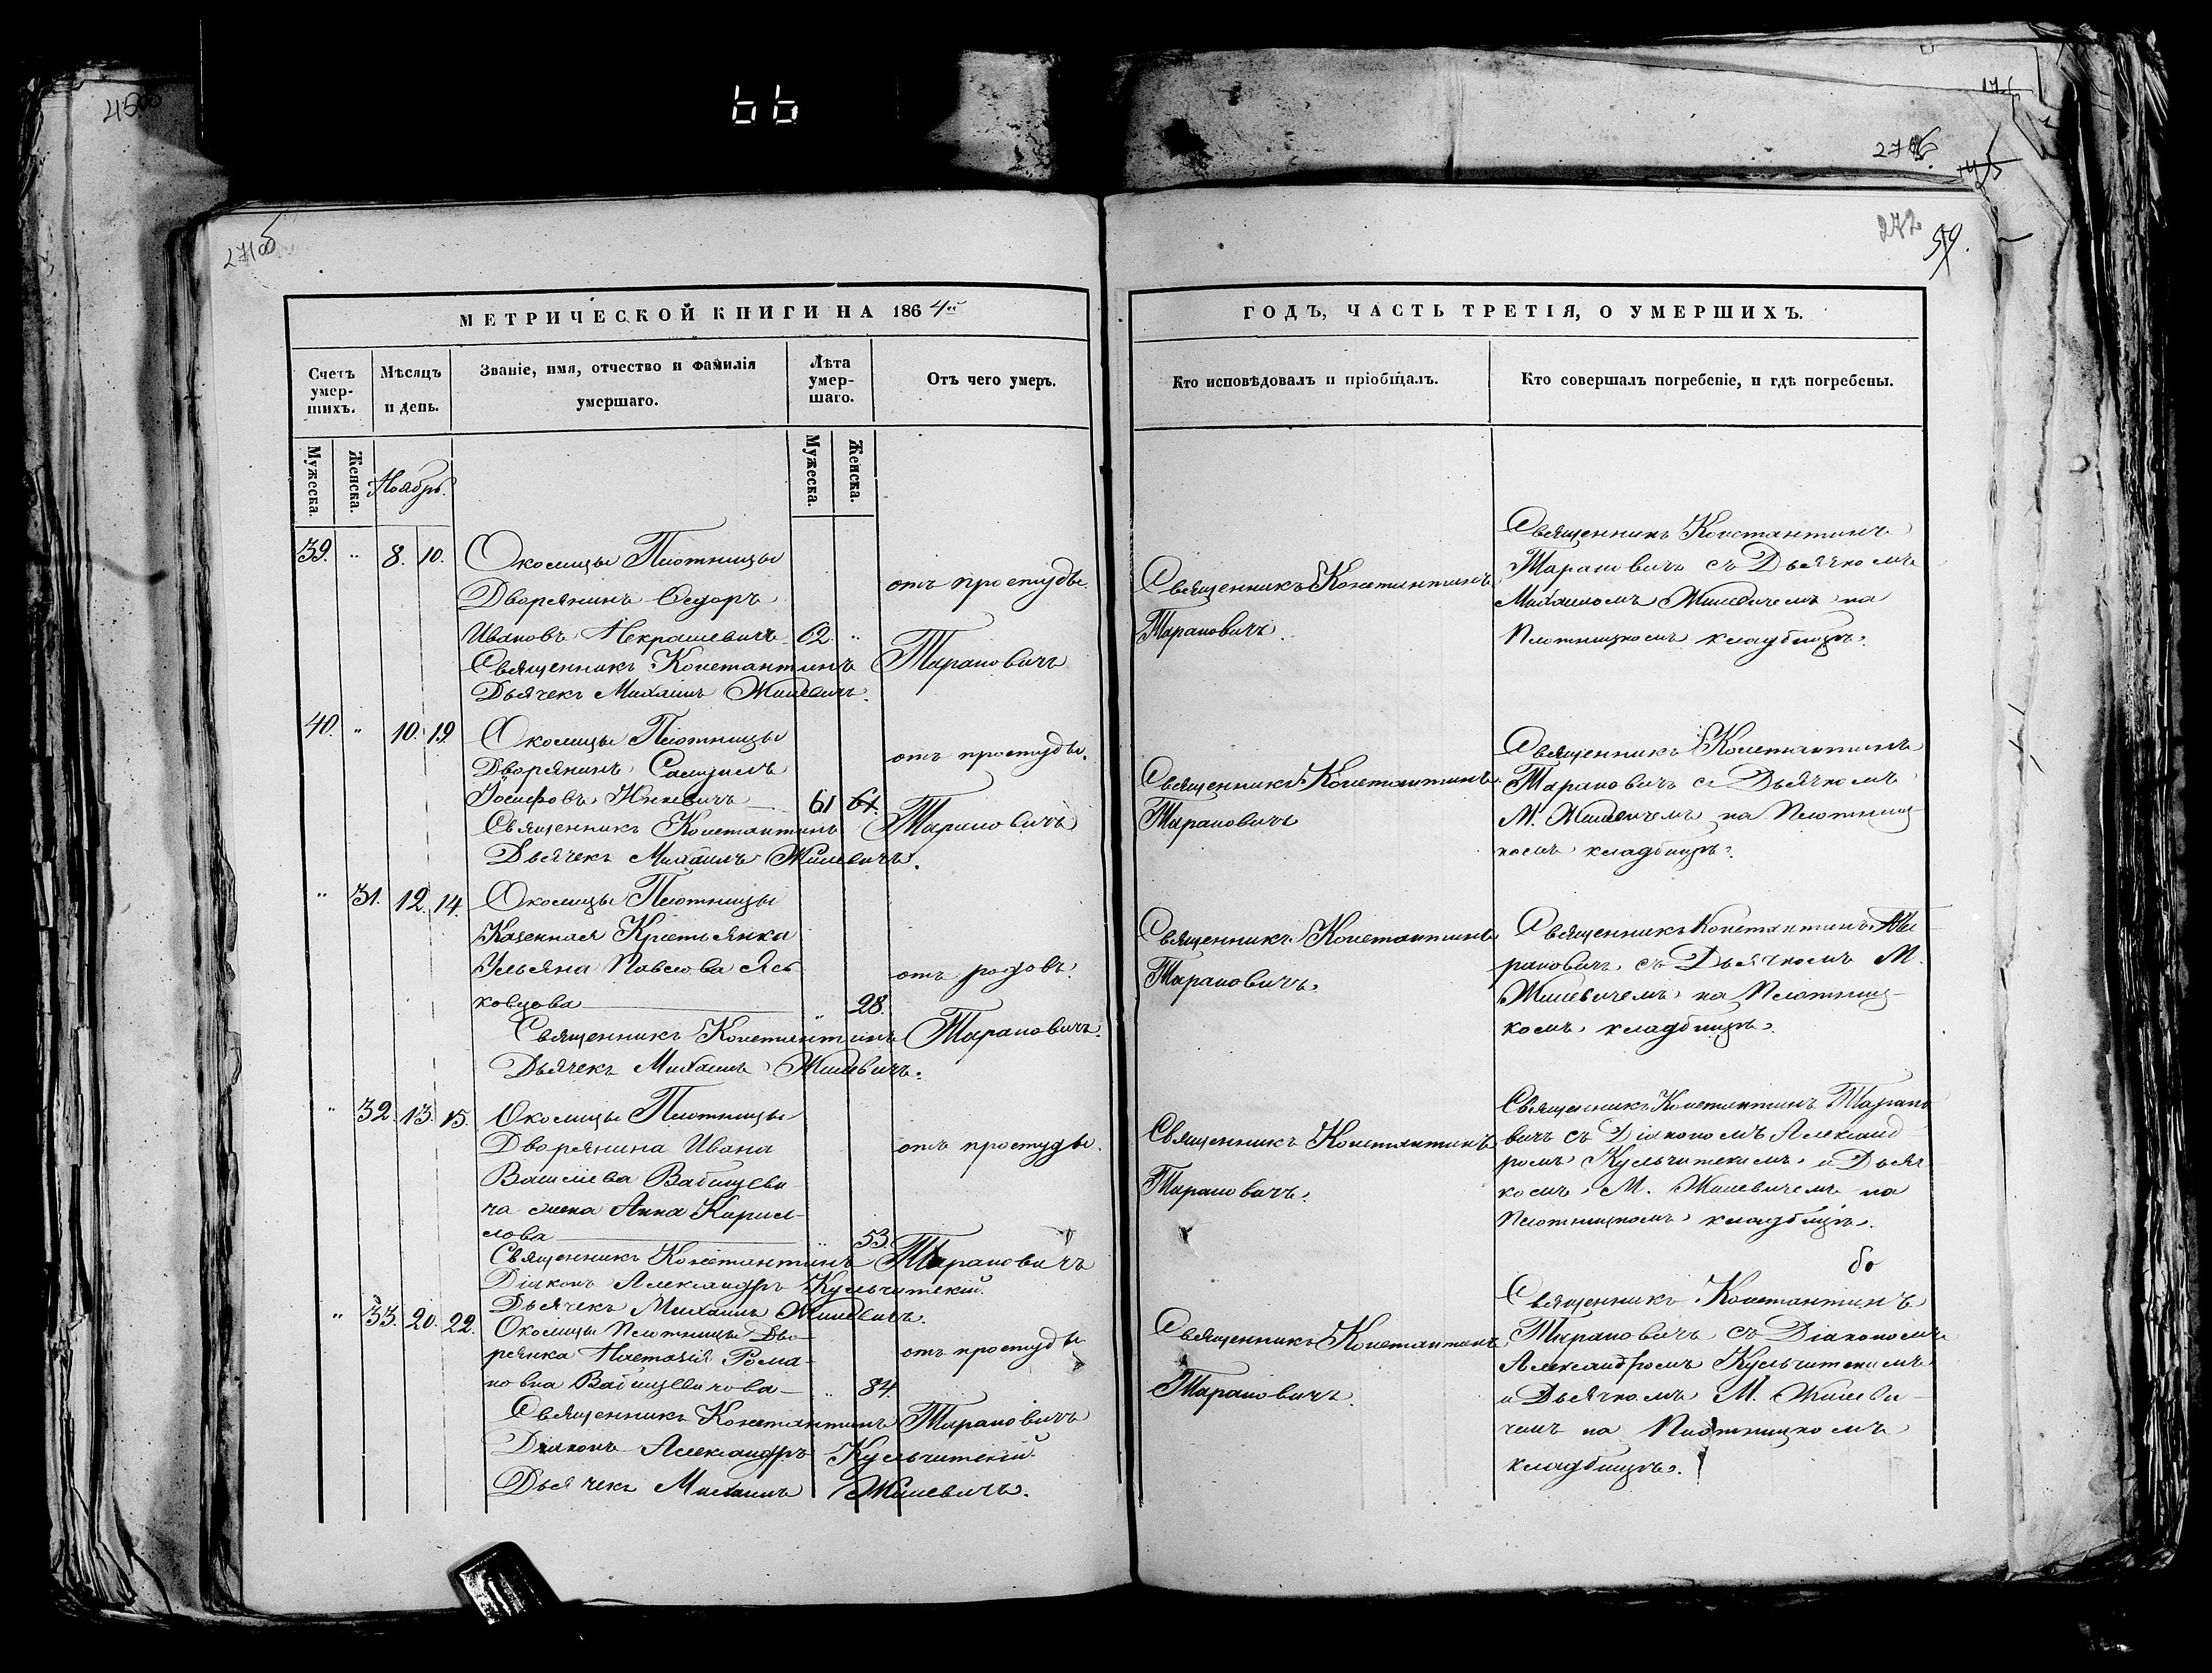 66
272
59.
МЕТРИЧЕСКОЙ КНИГИ НА 1864й
Счетъ умер-шихъ.
Мѣсяцъ и день.
Званіе, имя, отчество и фамилія умершаго.
Лѣта умер-шаго.
Отъ чего умеръ.
Мужеска.
Женска.
Ноябрь.
Мужеска.
Женска.
39. " 8. 10. Околицы Плотницы
Дворянинъ Ѳедоръ
Ивановъ Некрашевичъ 62 "
отъ простуды.
Священникъ Константинъ Тарановичъ
Дьячекъ Михаилъ Жилевичъ.
40. " 10. 19. Околицы Плотницы
Дворянинъ Самуилъ
Іосифовъ 61 61.
отъ простуды.
Священникъ Константинъ Тарановичъ
Дьячекъ Михаилъ Жилевичъ.
" 31. 12. 14. Околицы Плотницы
Казенная Крестьянка
Ульяна ПавловаЯсь
ковцова " 28.
отъ родовъ.
Священникъ Константинъ Тарановичъ.
Дьячекъ Михаилъ Жилевичъ.
" 32. 13. 15. Околицы Плотницы
Дворянина Ивана
Васильева Вабищеви
ча жена Анна Кирил-
лова " 53.
отъ простуды.
Священникъ Константинъ Тарановичъ
Діаконъ Александръ Кульчитскій.
Дьячекъ Михаилъ Жилевичъ.
" 33. 20. 22. Околицы Плотницы Дво-
рянка Настасія Рома-
новна Вабищевичова " 84.
отъ простуды
Священникъ Константинъ Тарановичъ
Діаконъ Александръ Кульчитскій.
Дьячекъ Михаилъ Жилевичъ.
ГОДЪ, ЧАСТЬ ТРЕТІЯ, О УМЕРШИХЪ.
Кто исповѣдовалъ и пріобщалъ.
Кто совершалъ погребеніе, и гдѣ погребены.
Священникъ Константинъ
Тарановичъ.
Священникъ Константинъ
Тарановичъ съ Дьячкомъ
Михаиломъ Жилевичемъ на
Плотницкомъ кладбищѣ.
Священникъ Константинъ
Тарановичъ
Священникъ Константинъ
Тарановичъ съ Дьячкомъ
М. Жилевичемъ на Плотниц-
комъ кладбищѣ.
Священникъ Константинъ
Тарановичъ.
Священникъ Константинъ Та
рановичъ съ Дьячкомъ М.
Жилевичемъ на Плотниц-
комъ кладбищѣ.
Священникъ Константинъ
Тарановичъ.
Священникъ Константинъ Тарано
вичъ съ Діакономъ Александ-
ромъ Кульчитскимъ и Дьяч
комъ М. Жилевичемъ на
Плотницкомъ кладбищѣ.
Священникъ Константинъ
Тарановичъ.
Священникъ Константинъ
Тарановичъ съ Діакономъ
Александромъ Кульчитскимъ
и Дьячкомъ М. Жилеви-
чемъ на Плотницкомъ
кладбищѣ.